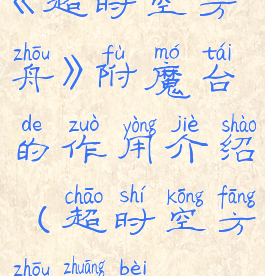 《超时空方
zhōu fù mó tái
舟》附魔台
de zuò yòng jiè shào
的作用介绍
chāo shí kōng fāng
（超时空方
zhōu zhuāng bèi